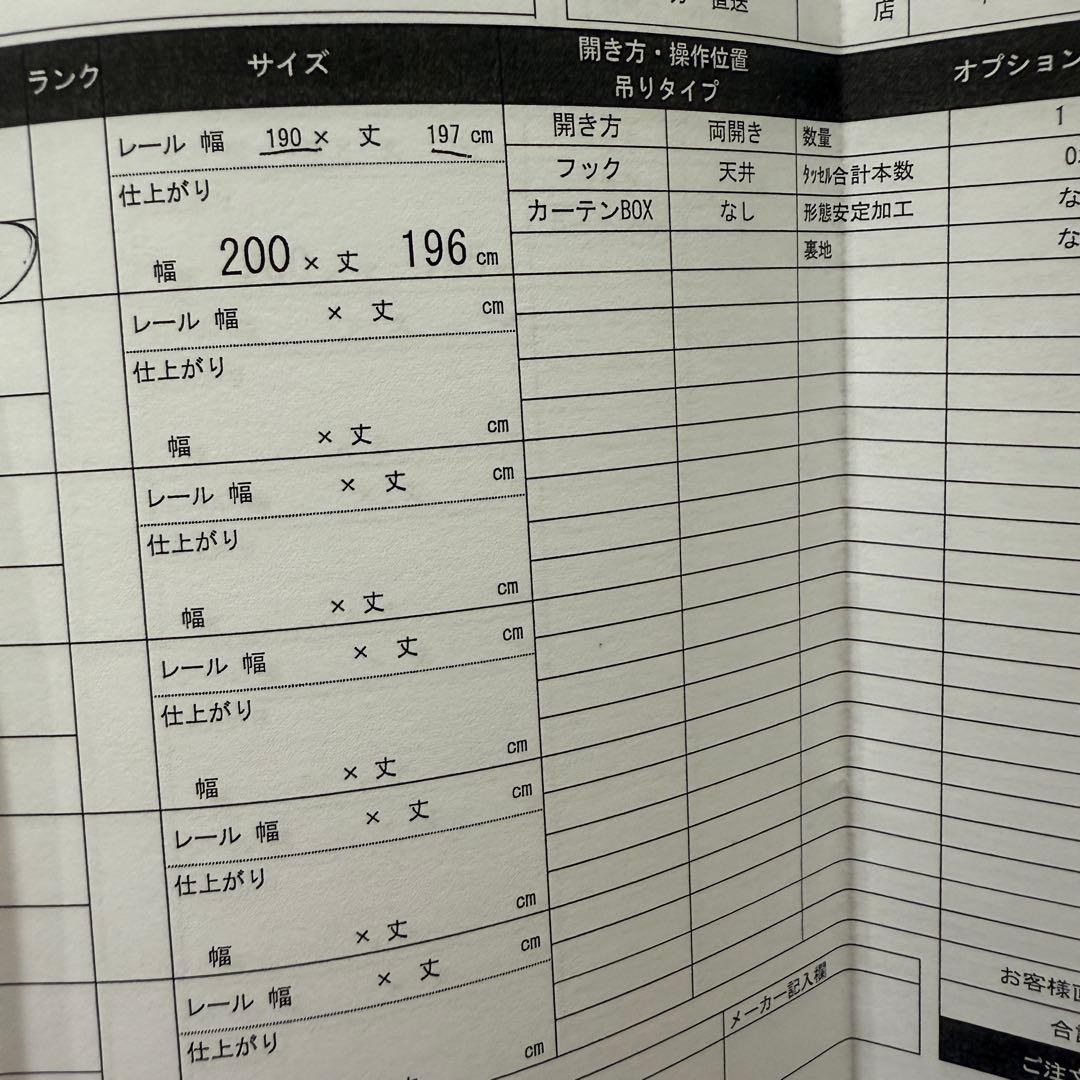 直送
店
ランク
サイズ
開き方・操作位置
吊りタイプ
オプション
レール 幅 190 × 丈 197 cm
仕上がり
幅 200 × 丈 196 cm
開き方 両開き 数量 1
フック 天井 ﾀｯｾﾙ合計本数 0
カーテンBOX なし 形態安定加工 な
裏地 な
レール 幅 × 丈 cm
仕上がり
幅 × 丈 cm
レール 幅 × 丈 cm
仕上がり
幅 × 丈 cm
レール 幅 × 丈 cm
仕上がり
幅 × 丈 cm
レール 幅 × 丈 cm
仕上がり
幅 × 丈 cm
レール 幅 × 丈 cm
仕上がり
cm
メーカー記入欄
お客様
合
ご注文